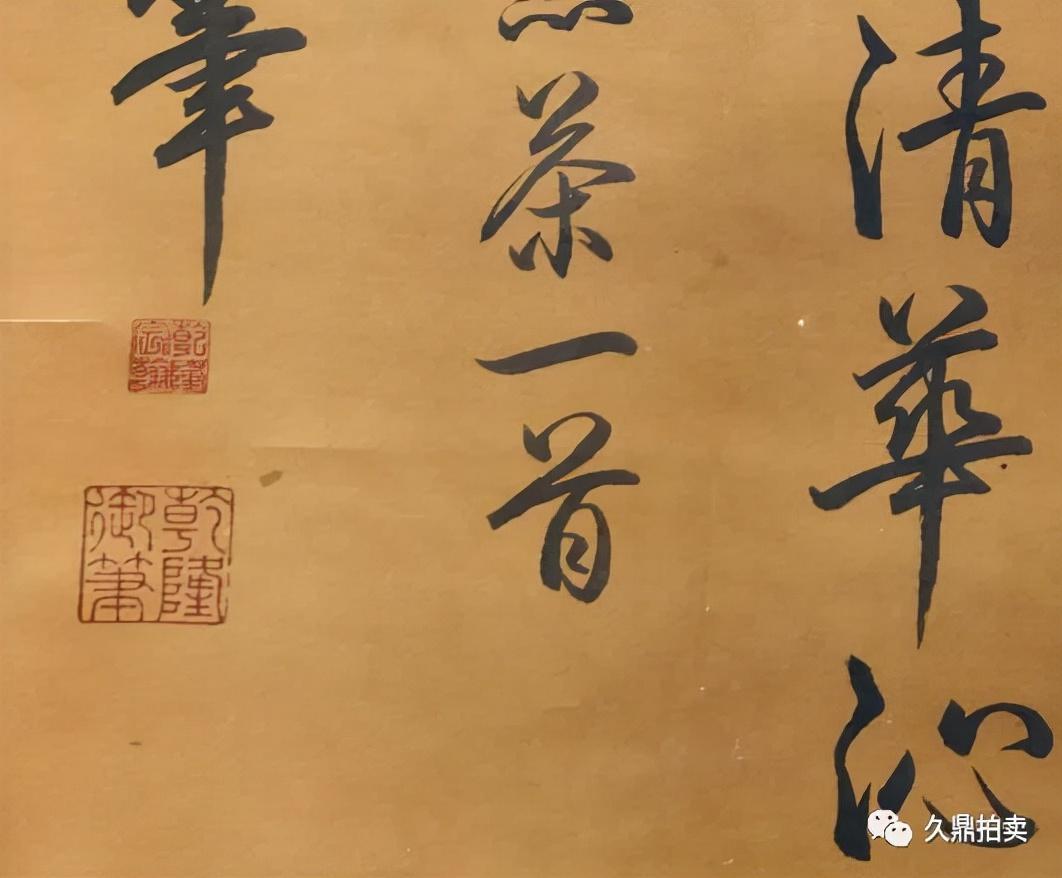 清華沁
茶一首
筆
乾隆宸翰
乾隆御筆
久鼎拍卖